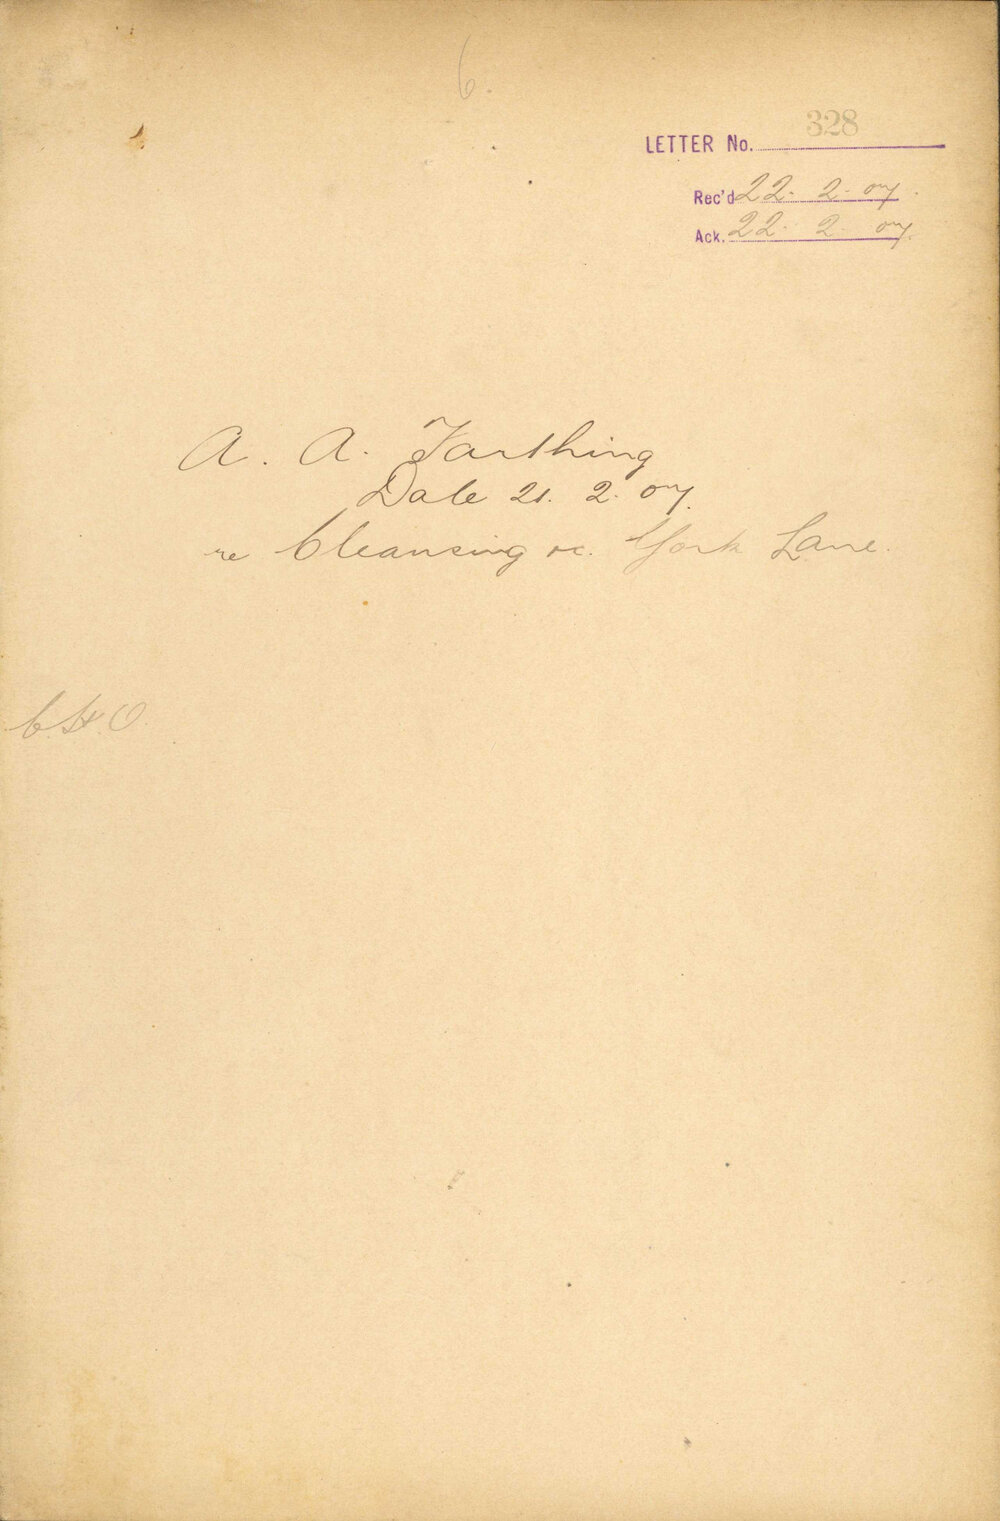 6.
LETTER No. 328
Rec'd 22. 2. 07.
Ack. 22. 2. 07.
A. A. Farthing
Date 21. 2. 07.
re Cleansing &c. York Lane.
C.H.O.